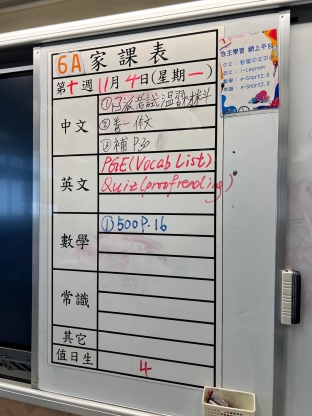 6A 家課表
第十週 11月4日(星期一)
中文
①已派考試溫習材料
②善一作文
③補P.3
英文
PGE(Vocab List)
Quiz(proofreading)
數學
①500P.16
常識
其它
值日生
4
自主學習 網上平台